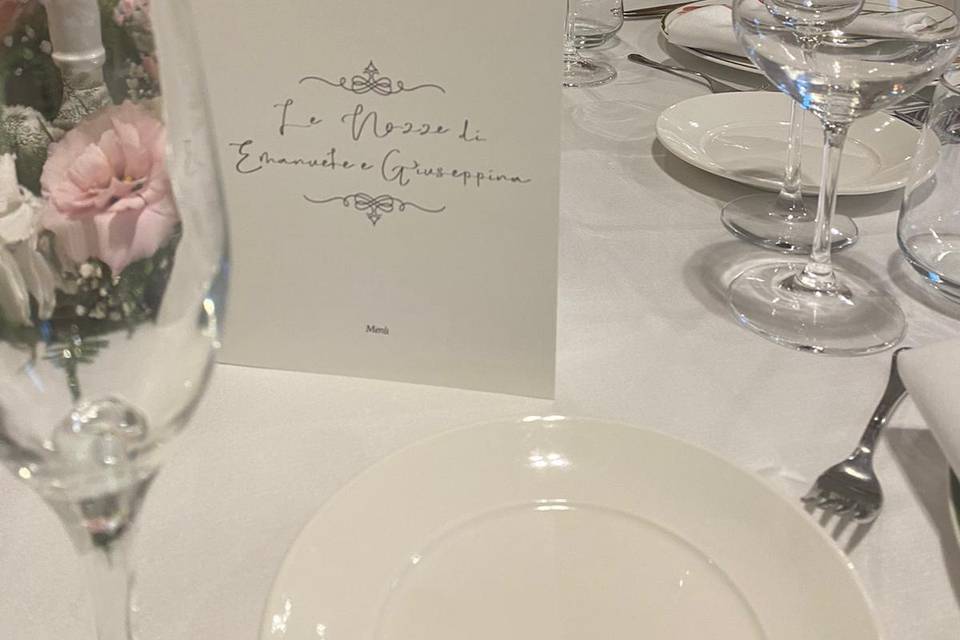 Le Nozze di
Emanuele e Giuseppina
Menù